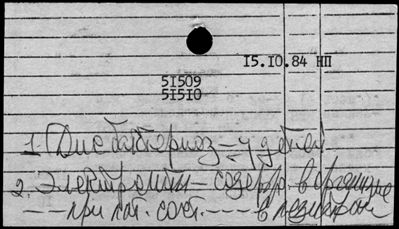 15.10.84 НП
51509
51510
1. Дисбактериоз – у детей
2. Электролиты – содерж. в организме
– – – при пат. сост. – – – – в педиатрии